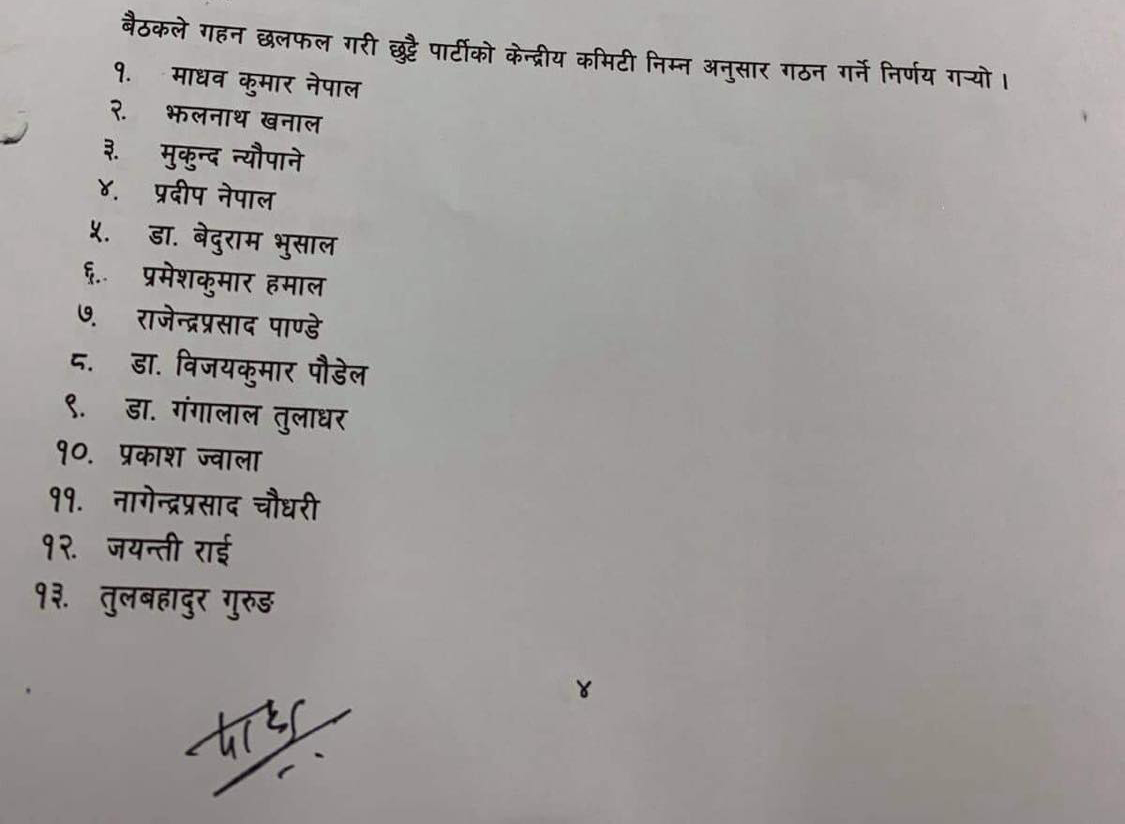 बैठकले गहन छलफल गरी छुट्टै पार्टीको केन्द्रीय कमिटी निम्न अनुसार गठन गर्ने निर्णय गर्‍यो ।
१. माधव कुमार नेपाल
२. झलनाथ खनाल
३. मुकुन्द न्यौपाने
४. प्रदीप नेपाल
५. डा. बेदुराम भुसाल
६.. प्रमेशकुमार हमाल
७. राजेन्द्रप्रसाद पाण्डे
८. डा. विजयकुमार पौडेल
९. डा. गंगालाल तुलाधर
१०. प्रकाश ज्वाला
११. नागेन्द्रप्रसाद चौधरी
१२. जयन्ती राई
१३. तुलबहादुर गुरुङ
४